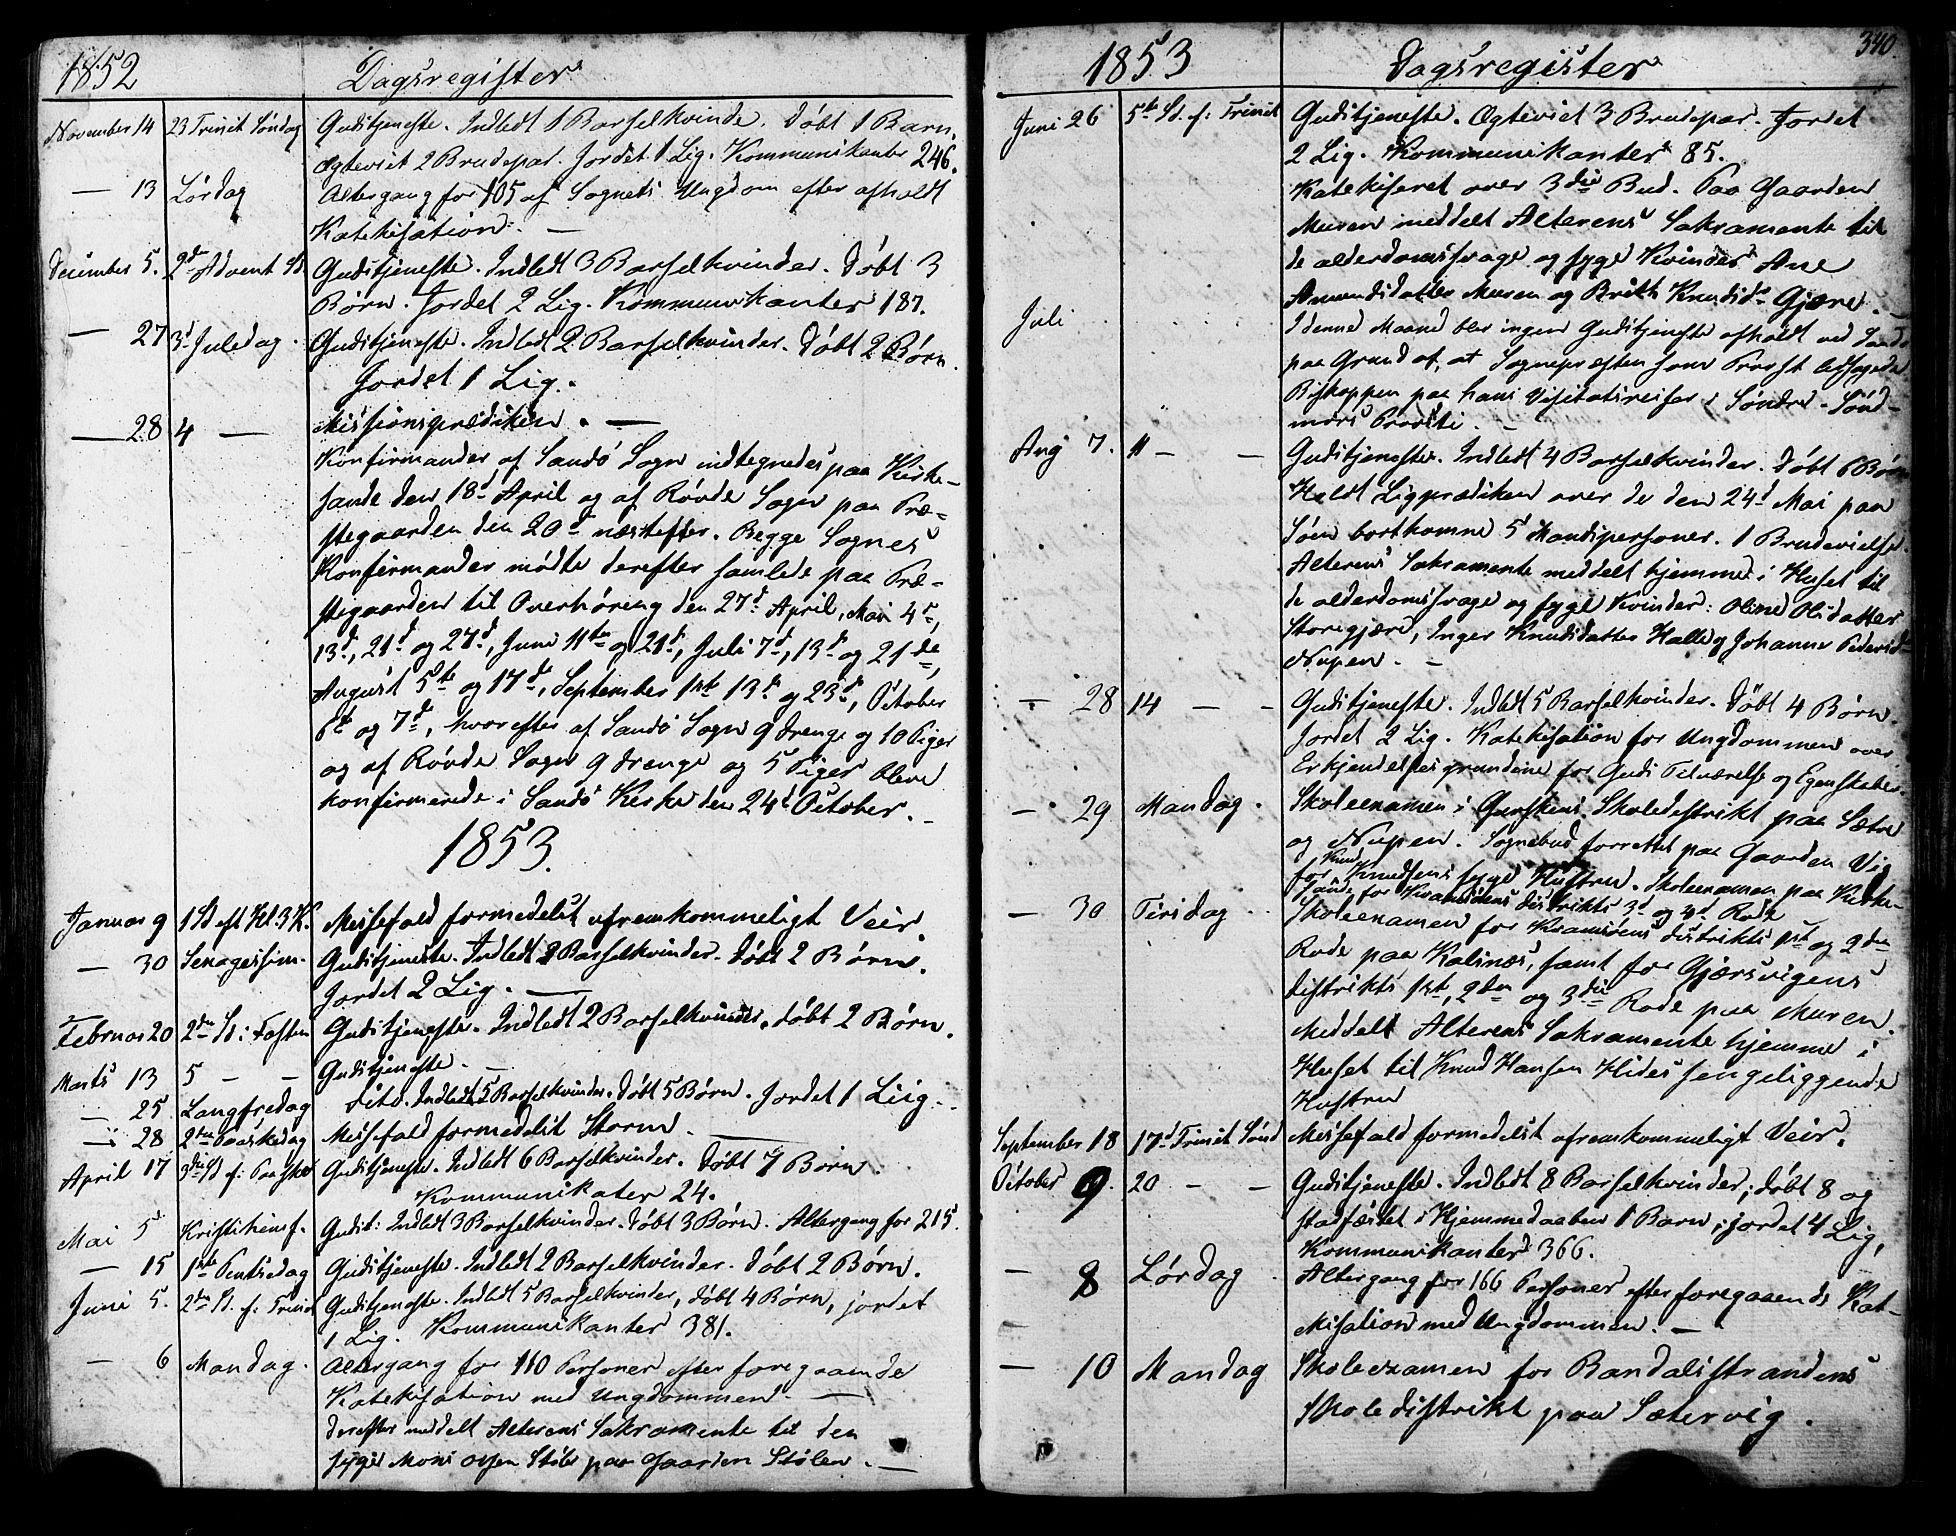 1852 Dagsregister
November 14 23 Trinit Søndag Gudstjeneste. Indledt 1 Barselkvinde. Døbt 1 Barn.
Ægteviet 2 Brudepar. Jordet 1 Lig. Kommunikanter 246.
— 13 Lørdag Altergang for 105 af Sognets Ungdom efter afholdt
Katekisation. —
December 5. 2d Advent Sd Gudstjeneste. Indledt 3 Barselkvinder. Døbt 3
Børn. Jordet 2 Lig. Kommunikanter 187.
— 27 3d Juledag. Gudstjeneste. Indledt 2 Barselkvinder. Døbt 2 Børn.
Jordet 1 Lig.
— 28 4 — Missionsprædiken. —
Konfirmander af Sandö Sogn indtegnedes paa Kirke-
sande den 18d April og af Rövde Sogn paa Præ-
stegaarden den 20d næstefter. Begge Sognes
Konfirmander mødte derefter samlede paa Præ-
stegaarden til Overhøring den 27d April, Mai 4d,
13d, 21d og 27d, Juni 11te og 21d, Juli 7d, 13d og 21de,
August 5te og 17d, September 1ste 13d og 23d, October
6te og 7d, hvorefter af Sandö Sogn 9 Drenge og 10 Piger
og af Rövde Sogn 9 Drenge og 5 Piger bleve
konfirmerede i Sandö Kirke den 24d October. —
1853.
Januar 9 1 Sd eft Hl. 3 K. Messefald formedelst ufremkommeligt Veir.
— 30 Sexagessim. Gudstjeneste. Indledt 2 Barselkvinder. Døbt 2 Børn.
Jordet 2 Lig. —
Februar 20 2den Sd i Fasten Gudstjeneste. Indledt 2 Barselkvinder, døbt 2 Børn.
Marts 13 5 — — Gudstjeneste. —
— 25. Langfredag Dito. Indledt 5 Barselkvinder. Døbt 5 Børn. Jordet 1 Liig. -
— 28 2den Paaskedag Messefald formedelst Storm. —
April 17 3die Sd f: Paaske Gudstjeneste. Indledt 6 Barselkvinder. Døbt 7 Børn.
Kommunikater 24.
Mai 5d Kristi himf. Gudst: Indledt 3 Barselkvinder. Døbt 3 Børn. Altergang for 215.
— 15 1ste Pintsedag Gudstjeneste. Indledt 2 Barselkvinder. Døbt 2 Børn.
Juni 5. 2den Sd. f: Trinit Gudstjeneste. Indledt 5 Barselkvinder, døbt 4 Børn, jordet
1 Lig. Kommunikanter 381.
— 6 Mandag. Altergang for 110 Personer efter foregaaende
Katekisation med Ungdommen. —
Derefter meddelt Alterens Sakramente til den
syge Mons Stölen paa Gaarden Stölen. —
340.
1853 Dagsregister
Juni 26 5te Sd. f: Trinit Gudstjeneste. Ægteviet 3 Brudepar. Jordet
2 Lig. Kommunikanter 85.
Katekiseret over 3die Bud. Paa Gaarden
Muren meddelt Alterens Sakramente til
de alderdomssvage og syge Kvinder Ane
Amundsdatter Muren og Brith Knudsdr Gjære. —
Juli I denne Maaned blev ingen Gudstjeneste afholdt ved Sandö
paa Grund af, at Sognepræsten som Provst ledsagede
Biskoppen paa hans Visitatsreiser i Søndre-Sönd-
mørs Provsti. —
Aug 7. 11 — — Gudstjeneste. Indledt 4 Barselkvinder. Døbt 6 Børn
Holdt Ligprædiken over de den 24d Mai paa
Søen bortkomne 5 Mandspersoner. 1 Brudevielse.
Alterens Sakramente meddelt hjemme i Huset til
de alderdomssvage og syge Kvinder: Oline Olsdatter
Storegjære, Inger Knudsdatter Halle og Johanne Pedersdr
Nupen. —
— 28 14 — — Gudstjeneste. Indledt 5 Barselkvinder. Døbt 4 Børn.
Jordet 2 Lig. Katekisation for Ungdommen over
Erkjendelsesgrundene for Guds Tilværelse og Egenskaber.
— 29 Mandag. Skoleexamen i Gurskens Skoledistrikt paa Sætre
og Nupen. Sognebud forrettet paa Gaarden Vig
for Knud Knudsens syge Hustru. Skoleexamen paa Kirke-
sande for Kramsöens Distrikts 3d og 4d Rode
— 30 Tirsdag. Skoleexamen for Kramsöens Distrikts 1ste og 2den
Rode paa Kalsnæs, samt for Gjærsvigens
Distrikts 1ste, 2den og 3die Rode paa Muren.
Meddelt Alterens Sakramente hjemme i
Huset til Knud Hansen Hides sengeliggende
Hustru
September 18 17d Trinit Sønd Messefald formedelst ufremkommeligt Veir.
October 9. 20 — — Gudstjeneste. Indledt 8 Barselkvinder; døbt 8 og
stadfæstet i Hjemmedaaben 1 Barn; jordet 4 Lig,
Kommunikanter 366.
— 8 Lørdag. Altergang for 166 Personer efter foregaaende Kat-
kisation med Ungdommen. —
— 10 Mandag Skoleexamen for Bandalsstrandens
Skoledistrikt paa Sætervig.